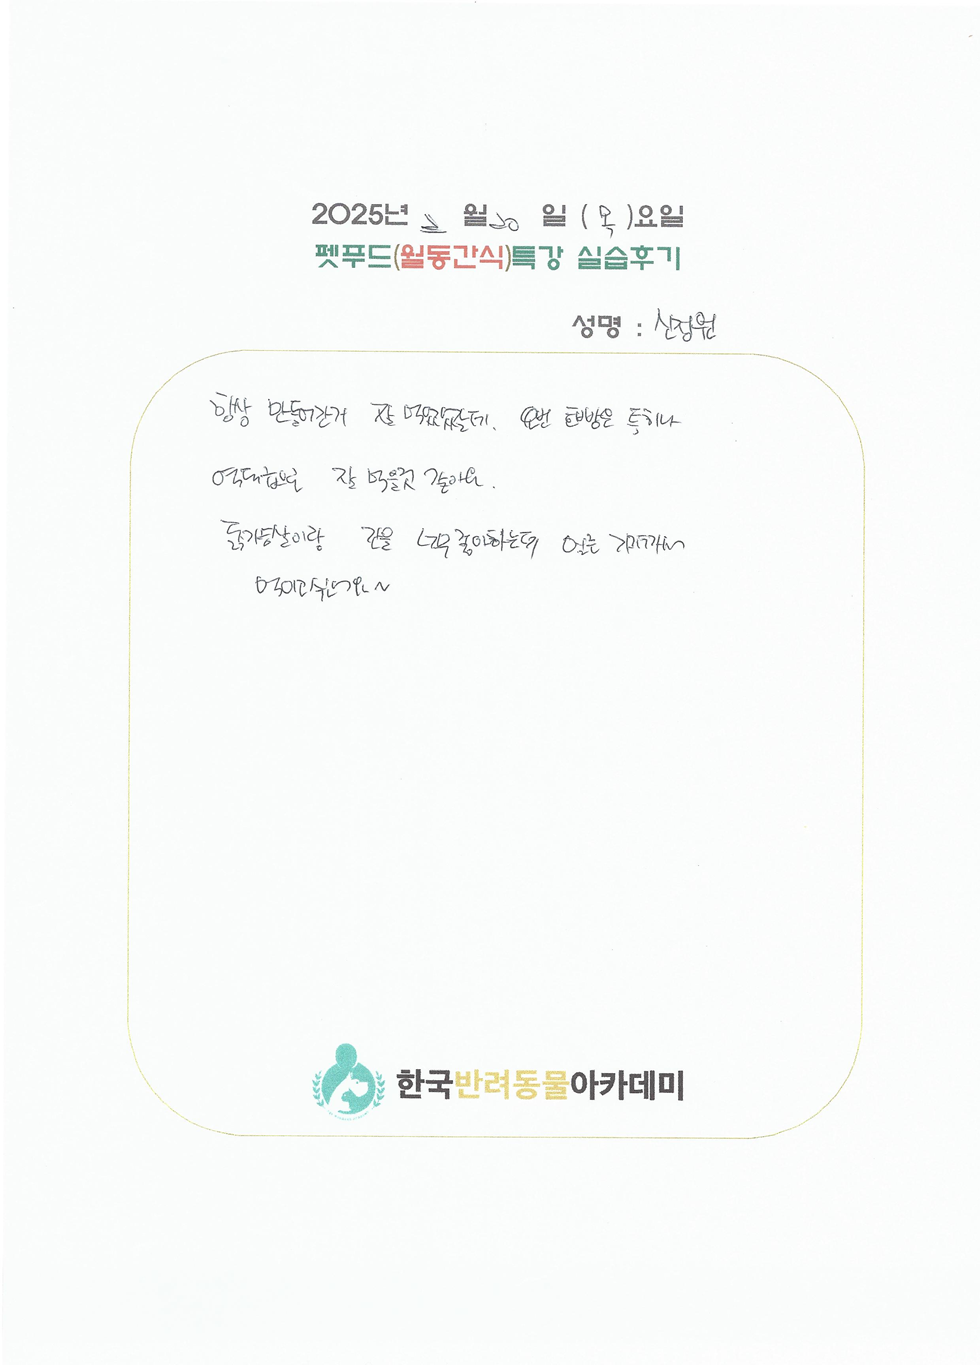 2025년 월 20 일 ( 목 )요일
펫푸드(월동간식)특강 실습후기
성명 : 신정원
항상 만들어간거 잘 먹었었는데, 요번 특히나
역대급으로 잘 먹을것 같아요.
닭가슴살이랑 간을 너무 좋아하는데 얼른 가서
먹이고싶네요~
한국반려동물아카데미